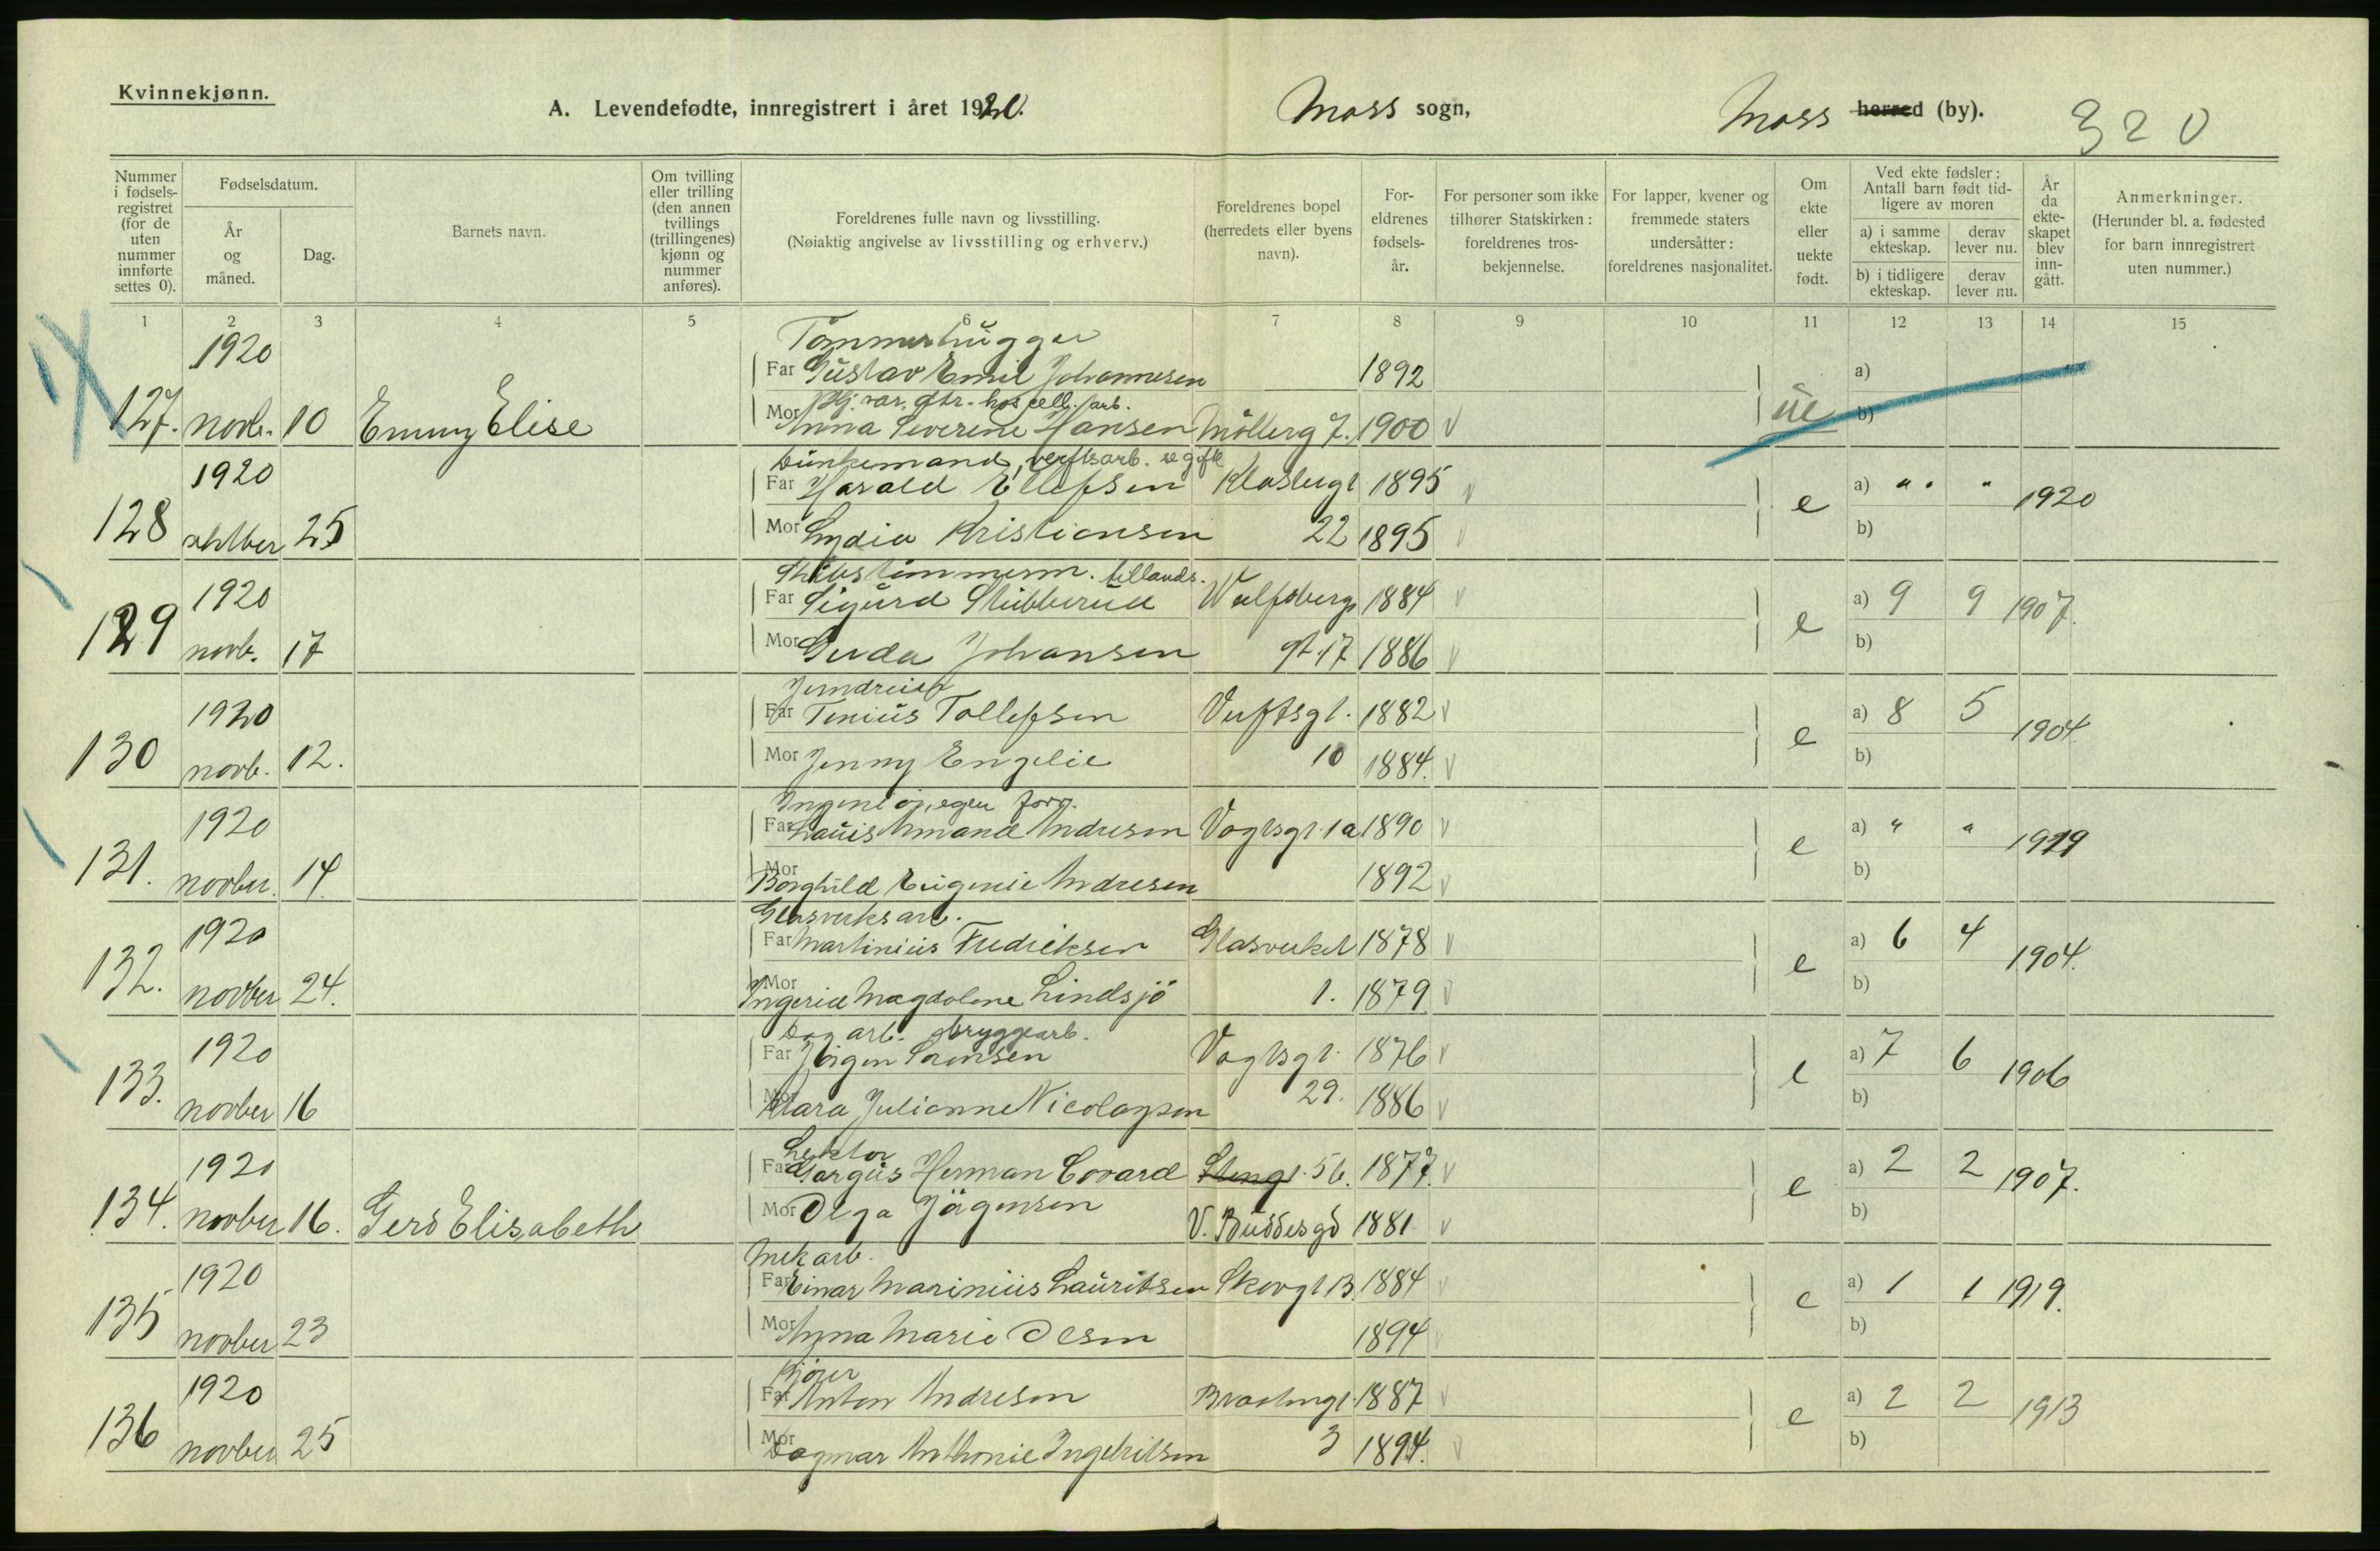 Kvinnekjønn.
A. Levendefødte, innregistrert i året 1920.
Moss sogn,
Moss herred (by).
320
Nummer i fødsels-registret (for de uten nummer innførte settes 0).
Fødselsdatum.
År og måned.
Dag.
Barnets navn.
Om tvilling eller trilling (den annen tvillings (trillingenes) kjønn og nummer anføres).
Foreldrenes fulle navn og livsstilling.
(Nøiaktig angivelse av livsstilling og erhverv.)
Foreldrenes bopel (herredets eller byens navn).
For-eldrenes fødsels-år.
For personer som ikke tilhører Statskirken: foreldrenes tros-bekjennelse.
For lapper, kvener og fremmede staters undersåtter: foreldrenes nasjonalitet.
Om ekte eller uekte født.
Ved ekte fødsler: Antall barn født tid-ligere av moren
a) i samme ekteskap.
derav lever nu.
b) i tidligere ekteskap.
derav lever nu.
År da ekte-skapet blev inn-gått.
Anmerkninger.
(Herunder bl. a. fødested for barn innregistrert uten nummer.)
1 2 3 4 5 6 7 8 9 10 11 12 13 14 15
1920 Tømmerhugger
Far Gustav Emil Johannesen 1892 a)
127. novb. 10 Emmy Elise Mor Anna Severine Hansen Møllerg 7. 1900 ue b)
1920 verftsarb.
Far Harald Ellefsen Klostergt 1895 e a) " " 1920
128 oktber 25 Mor Lydia Kristiansen 22 1895 b)
Skibstømmerm. tillands.
1920 Far Sigurd Stubberud Wulfsberg 1884 e a) 9 9 1907.
129 novb. 17 Mor Gerda Johansen gt. 17 1886 b)
Jerndreier
1920 Far Tenius Tollefsen Verftsgt. 1882 e a) 8 5 1904
130 novb. 12. Mor Jenny Engelie 10 1884. b)
Ingeniør, egen forr.
1920 Far Louis Amand Andresen Vogtsgt. 1a 1890 e a) " " 1919
131. novber. 14. Mor Borghild Eugenie Andresen 1892 b)
Glasverksarb.
1920 Far Martinius Fredriksen Glasverket 1878 e a) 6 4 1904.
132. novber 24. Mor Ingerid Magdalene Lindsjö 1. 1879 b)
Dagarb. bryggearb.
1920 Far Jørgen Sørensen Vogtsgt. 1876 e a) 7 6 1906
133. novber 16 Mor Klara Julianne Nicolaysen 29. 1886 b)
Lektor
1920 Far Gargus Herman Covard Stengt. 56. 1877. e a) 2 2 1907.
134. novber 16. Gerd Elisabeth Mor Olga Jörgensen V. Buddesgd 1881. b)
Mek arb.
1920 Far Einar Marinius Lauritsen Skovgt 13. 1884 e a) 1 1 1919.
135 novber 23 Mor Anna Marie Olsen 1894 b)
Kjører
1920 Far Anton Andresen 1887 e a) 2 2 1913
136 novber 25 Mor Dagmar Anthonie Ingebritsen 3 1894. b)